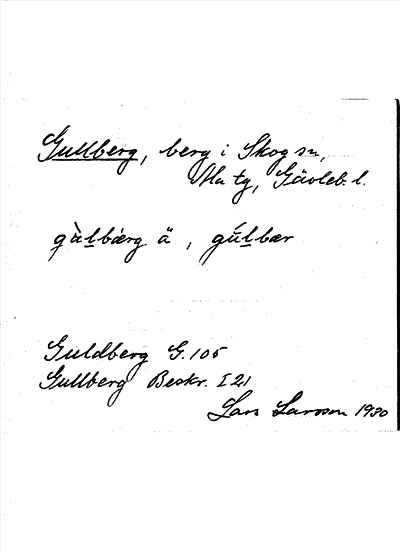 Gullberg, berg i Skog sn,
Ala tg, Gävleb. l.
gùlbærg ä, gúlbær
Guldberg G. 105
Gullberg Beskr. I 21
Lars Larsson 1930